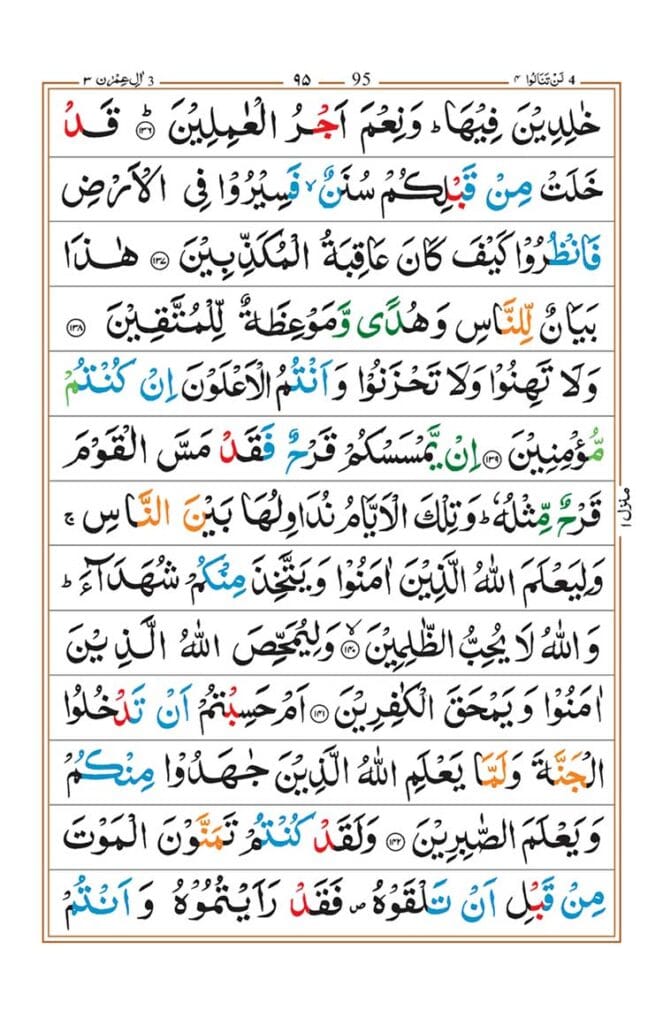 4 لَنْ تَنَالُوا ۴ 95 ۹۵ 3 اٰلِ عِمْرٰن ۳
خٰلِدِيْنَ فِيْهَا ؕ وَنِعْمَ اَجْرُ الْعٰمِلِيْنَ ؕ﴿۱۳۶﴾ قَدْ
خَلَتْ مِنْ قَبْلِكُمْ سُنَنٌ ۙ فَسِيْرُوْا فِى الْاَرْضِ
فَانْظُرُوْا كَيْفَ كَانَ عَاقِبَةُ الْمُكَذِّبِيْنَ ﴿۱۳۷﴾ هٰذَا
بَيَانٌ لِّلنَّاسِ وَهُدًى وَّمَوْعِظَةٌ لِّلْمُتَّقِيْنَ ﴿۱۳۸﴾
وَلَا تَهِنُوْا وَلَا تَحْزَنُوْا وَاَنْتُمُ الْاَعْلَوْنَ اِنْ كُنْتُمْ
مُّؤْمِنِيْنَ ﴿۱۳۹﴾ اِنْ يَّمْسَسْكُمْ قَرْحٌ فَقَدْ مَسَّ الْقَوْمَ
قَرْحٌ مِّثْلُهٗ ؕ وَتِلْكَ الْاَيَّامُ نُدَاوِلُهَا بَيْنَ النَّاسِ ۚ
وَلِيَعْلَمَ اللّٰهُ الَّذِيْنَ اٰمَنُوْا وَيَتَّخِذَ مِنْكُمْ شُهَدَآءَ ؕ
وَاللّٰهُ لَا يُحِبُّ الظّٰلِمِيْنَ ۙ﴿۱۴۰﴾ وَلِيُمَحِّصَ اللّٰهُ الَّذِيْنَ
اٰمَنُوْا وَيَمْحَقَ الْكٰفِرِيْنَ ﴿۱۴۱﴾ اَمْ حَسِبْتُمْ اَنْ تَدْخُلُوا
الْجَنَّةَ وَلَمَّا يَعْلَمِ اللّٰهُ الَّذِيْنَ جٰهَدُوْا مِنْكُمْ
وَيَعْلَمَ الصّٰبِرِيْنَ ﴿۱۴۲﴾ وَلَقَدْ كُنْتُمْ تَمَنَّوْنَ الْمَوْتَ
مِنْ قَبْلِ اَنْ تَلْقَوْهُ ۖ فَقَدْ رَاَيْتُمُوْهُ وَاَنْتُمْ
منزل ۱